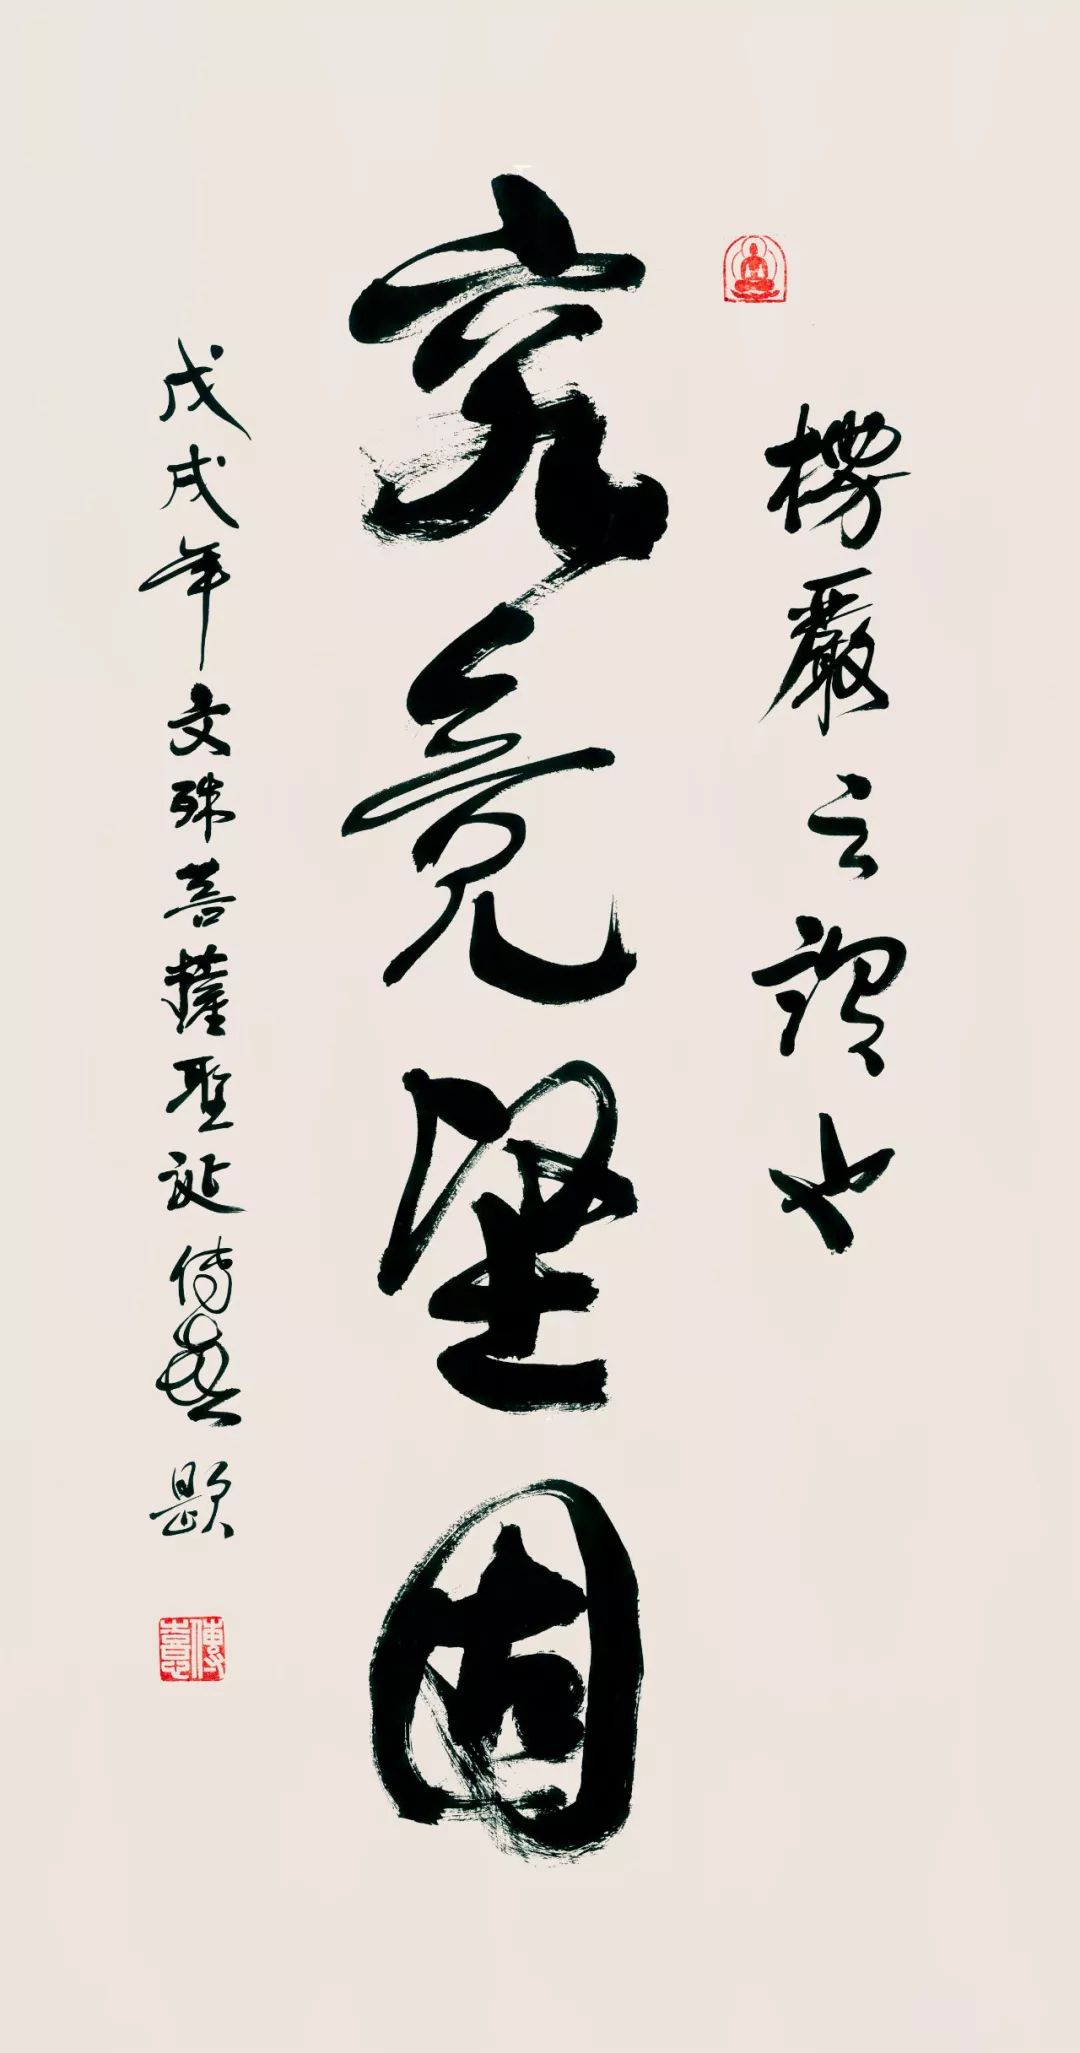 楞嚴之謂也
究竟堅固
戊戌年文殊菩薩聖誕傳喜題
傳喜